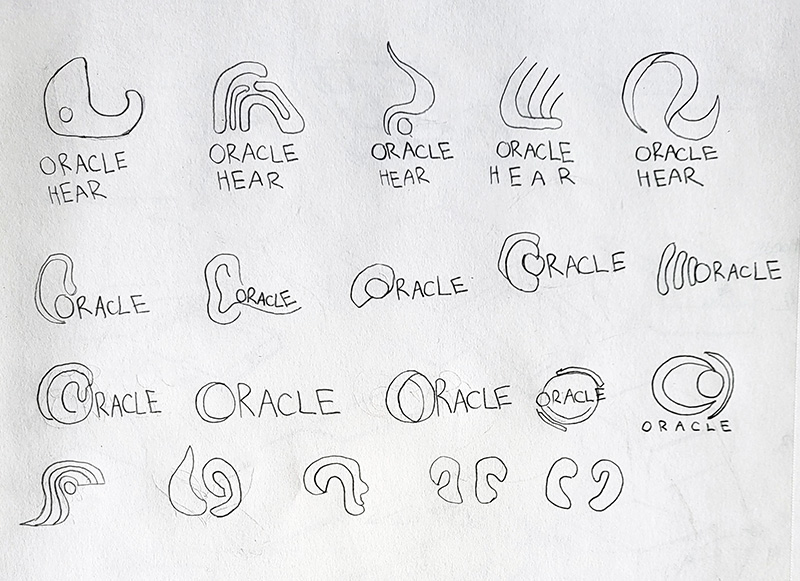 ORACLE
HEAR
ORACLE
HEAR
ORACLE
HEAR
ORACLE
HEAR
ORACLE
HEAR
ORACLE
ORACLE
ORACLE
ORACLE
ORACLE
ORACLE
ORACLE
ORACLE
ORACLE
ORACLE